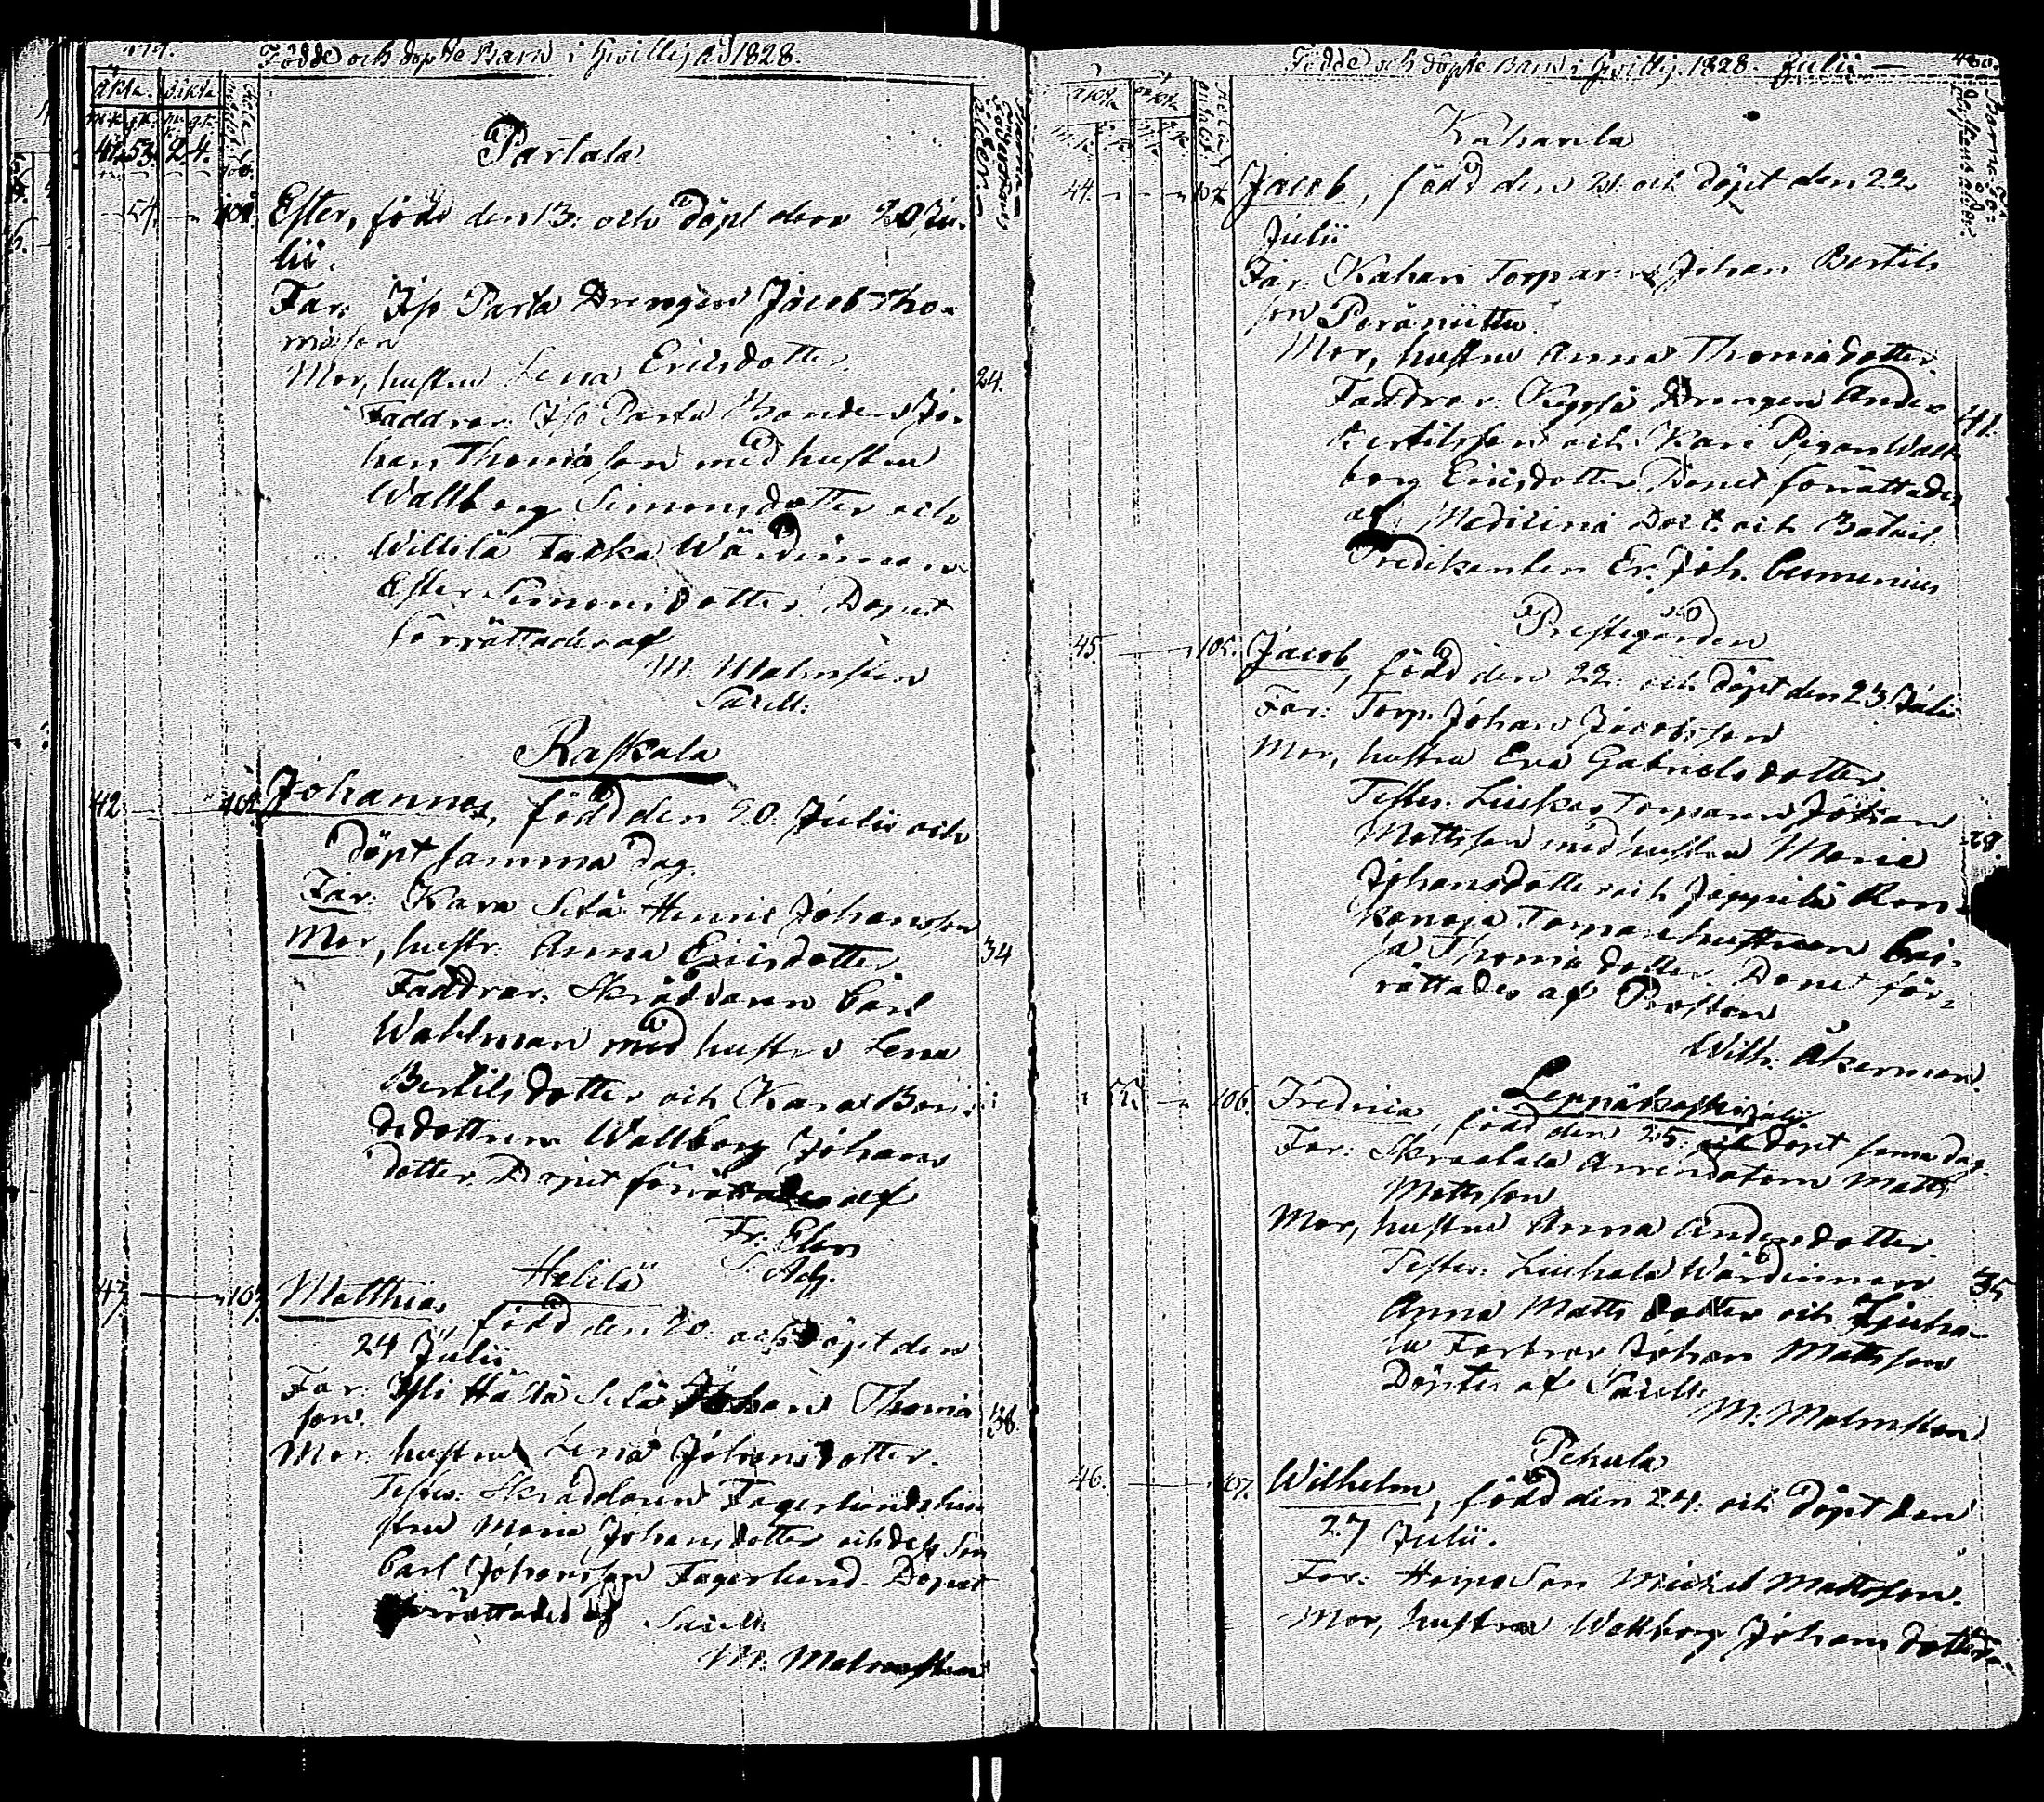 179.
Födde och döpte Barn i Hvittis år 1828.
Äkta. Oäkta
m.k. q.k. m.k. q.k.
41. 53. 2. 4. 100.
Partala
54. 101. Ester, född den 13. och döpt den 20 Ju-
lii.
Far: Iso Parta Drengen Jacob Tho-
masson
Mor, hustru Lena Ericsdotter. 24.
Faddrar: Iso Parta Bonden Jo-
han Thomasson med hustru
Wallborg Simonsdotter och
Willilä Facka Wärdinnan
Ester Simonsdotter. Dopet
förrättades af
M. Malmsten
Sacell.
Raskala
42 102. Johannes, född den 20 Julii och
döpt samma dag.
Far: Kara Sctä Henric Johansson
Mor, hustr. Anna Ericsdotter 34
Faddrar: Skräddaren Carl
Wahlman med hustru Lena
Bertilsdotter och Kara Bon-
dedottren Wallborg Johans
dotter. Dopet förrättades af
Fr. Elon
Adj.
Helilä
43 103. Matthias, född den 20. och döpt den
24 Julii
Far: Yli Hätä Sctä Johan Thomas
son. 38.
Mor hustru Lena Johansdotter.
Testes: Skräddaren Fagerlunds hu-
stru Maria Johansdotter och dess Son
Carl Johansson Fagerlund. Dopet
förrättades af Sacell.
M. Malmsten
Födde och döpte Barn i Hvittis. 1828. Julii 180.
Kaharila
44. 104 Jacob, född den 21. och döpt den 22.
Julii
Far: Kahari Torparen Johan Bertils
son Peräniittu.
Mor, hustru Anna Thomasdotter.
Faddrar: Keppä Drengen Anders 41.
Bertilsson och Kari Pigan Wall-
borg Ericsdotter. Dopet förrättades
af Medicinä Doct. och Batail:
Predikanten Er. Joh. Cumenius
Prestegården
45. 105. Jacob, född den 22. och döpt den 23 Julii
Far: Torp. Johan Jacobsson
Mor, hustru Eva Gabrielsdotter
Testes: Torparen Johan
Mattsson med hustru Maria 28.
Johansdotter och Jappila Ron-
kanoja Torpare hustrun Cai-
sa Thomasdotter. Dopet för-
rättades af Prosten
Wilh. Åkerman.
Leppäkoski
55. 106. Fredrica, född den 25. Julii och döpt sama dag.
Far: Skraatala Arrendatorn Matts
Mattsson
Mor, hustru Anna Andersdotter.
Testes: Liuhala Wärdinnan 35
Anna Mattsdotter och Liuha-
la Farbror Johan Mattsson
Döptes af Sacell.
M. Malmsten
Pehula
46. 107. Wilhelm, född den 24. och döpt den
27 Julii.
Far: Heipo Son Michel Mattsson.
Mor, hustru Wallborg Johansdotter